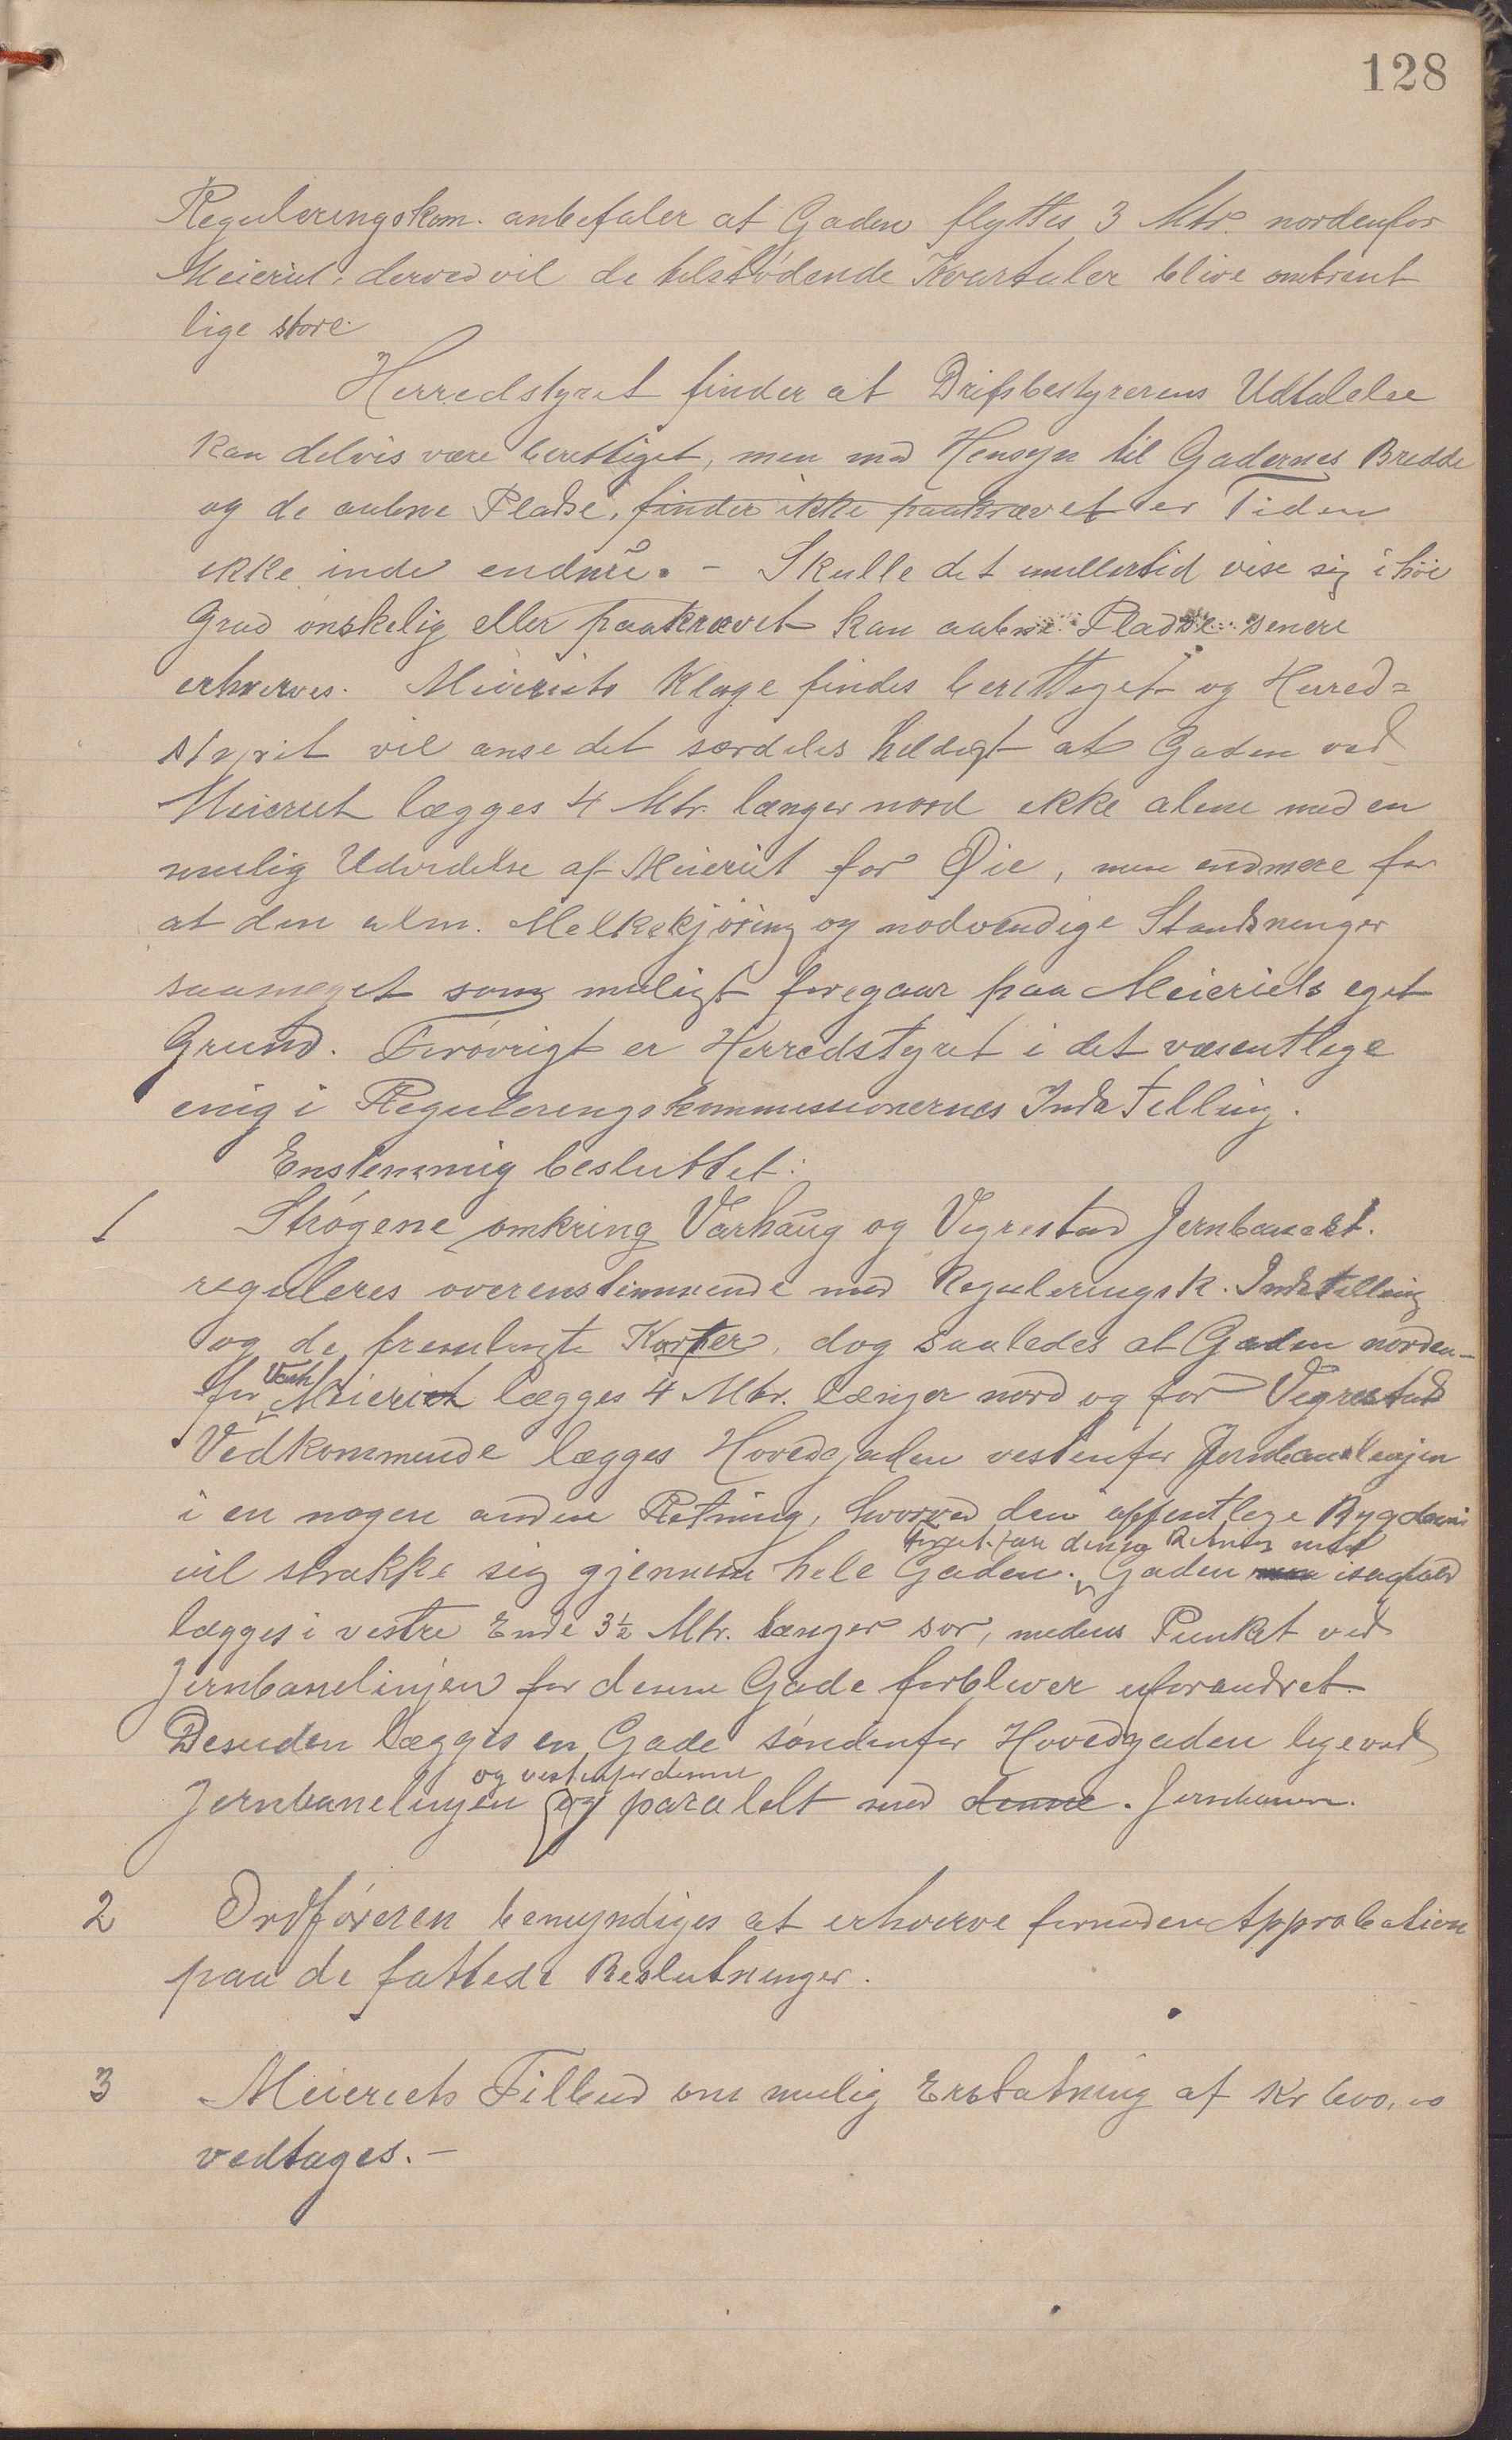 128
Reguleringskom. anbefaler at Gaden flyttes 3 Mtr. nordenfor
Meieriet, derved vil de tilstødende Kvartaler blive omtrent
lige store.
Herredstyret finder at Drifsbestyrerens Udtalelse
kan delvis være berettiget, men med Hensyn til Gadernes Bredde
og de aabne Pladse, finder ikke paakrævet er Tiden
ikke inde endnu. - Skulle det imellertid vise sig i høi
Grad ønskelig eller paakrævet kan aabne Pladse senere
erhverves. Meieriets Klage findes berettiget og Herred=
styret vil anse det særdeles heldigt at Gaden ved
Meieriet lægges 4 Mtr. længer nord ikke alene med en
mulig Udvidelse af Meieriet for Øie, men endmere for
at den alm. Melkekjøring og nødvendige Standsninger
saameget som muligt foregaar paa Meieriets eget
Grund. Forøvrigt er Herredstyret i det væsentlige
enig i Reguleringskommissionernes Indstilling.
Enstemmig besluttet:
1 Strøgene omkring Varhaug og Vigrestad Jernbanest.
reguleres overenstemmende med Reguleringsk. Indstilling
og de fremlagte Karter, dog saaledes at Gaden norden-
for Varh. Meieriet lægges 4 Mtr. længer nord og for Vigrestad
Vedkommende lægges Hovedgaden vestenfor Jernbanelinjen
i en nogen anden Retning, hvorved den offentlige Bygdevei
vil strække sig gjennem hele Gaden. Gaden isaafald
lægges i vestre Ende 3½ Mtr. længer sør, medens Punktet ved
Jernbanelinjen for denne Gade forbliver uforandret.
Desuden lægges en Gade søndenfor Hovedgaden lige ved
Jernbanelinjen og vestenfor denne og paralelt med denne. Jernbanen.
2 Ordføreren bemyndiges at erhverve fornøden Approbation
paa de fattede Beslutninger.
3 Meieriets Tilbud om mulig Erstatning af Kr 600,00
vedtages. -